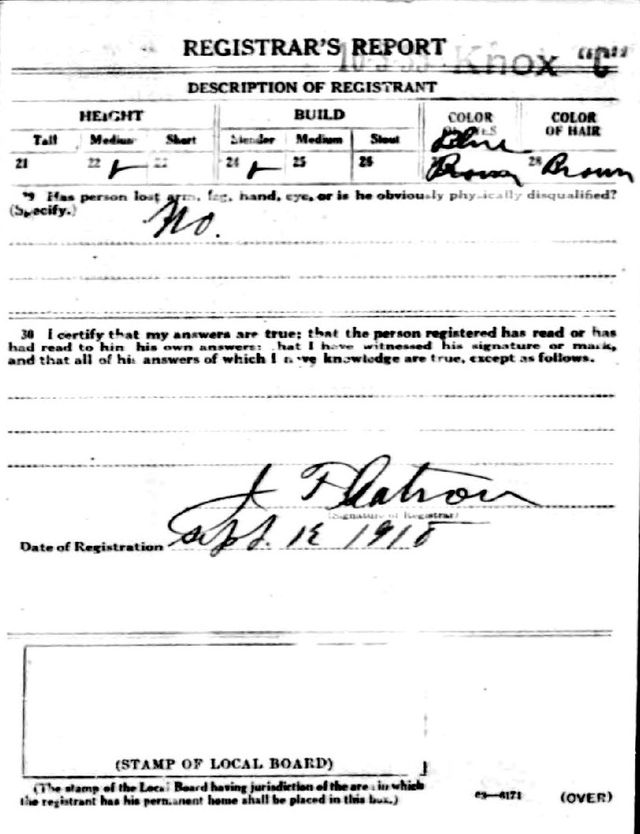 REGISTRAR'S REPORT
10-3-35 Knox "C"
DESCRIPTION OF REGISTRANT
HEIGHT BUILD COLOR OF EYES COLOR OF HAIR
Tall Medium Short Slender Medium Stout
21 22 ✓ 23 24 ✓ 25 26 Blue
Brown 28 Brown
29 Has person lost arm, leg, hand, eye, or is he obviously physically disqualified?
(Specify.) No.
30 I certify that my answers are true; that the person registered has read or has
had read to him his own answers; that I have witnessed his signature or mark,
and that all of his answers of which I have knowledge are true, except as follows.
J F Catron
(Signature of Registrar)
Date of Registration Sept. 12 1918
(STAMP OF LOCAL BOARD)
(The stamp of the Local Board having jurisdiction of the area in which
the registrant has his permanent home shall be placed in this box.)
03—6171 (OVER)